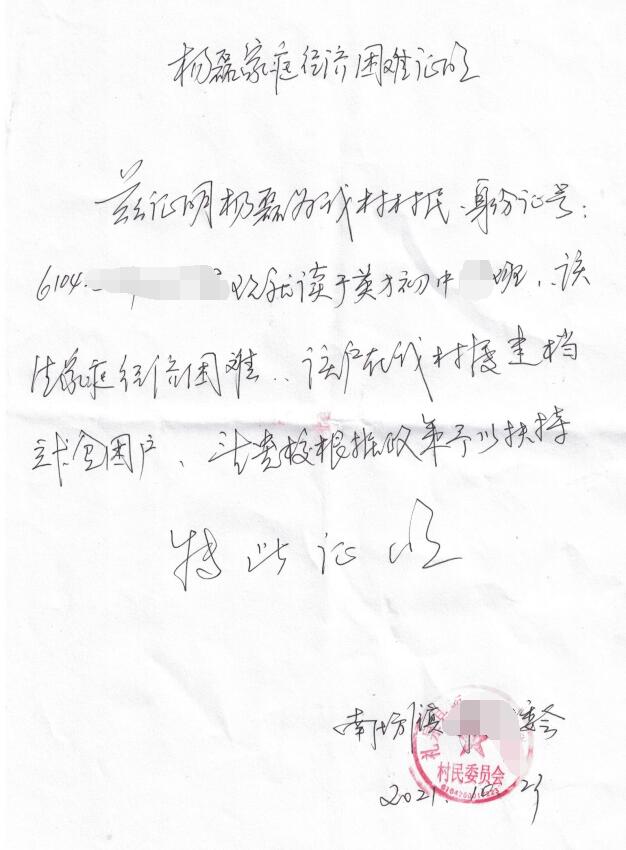 杨磊家庭经济困难证明
兹证明杨磊为我村村民.身份证号:
6104 现就读于英才初中 班,该
生家庭经济困难,该户在我村度建档
立卡贫困户、请贵校根据政策予以扶持
特此证明
南坊镇 委会
村民委员会
2021.10.25